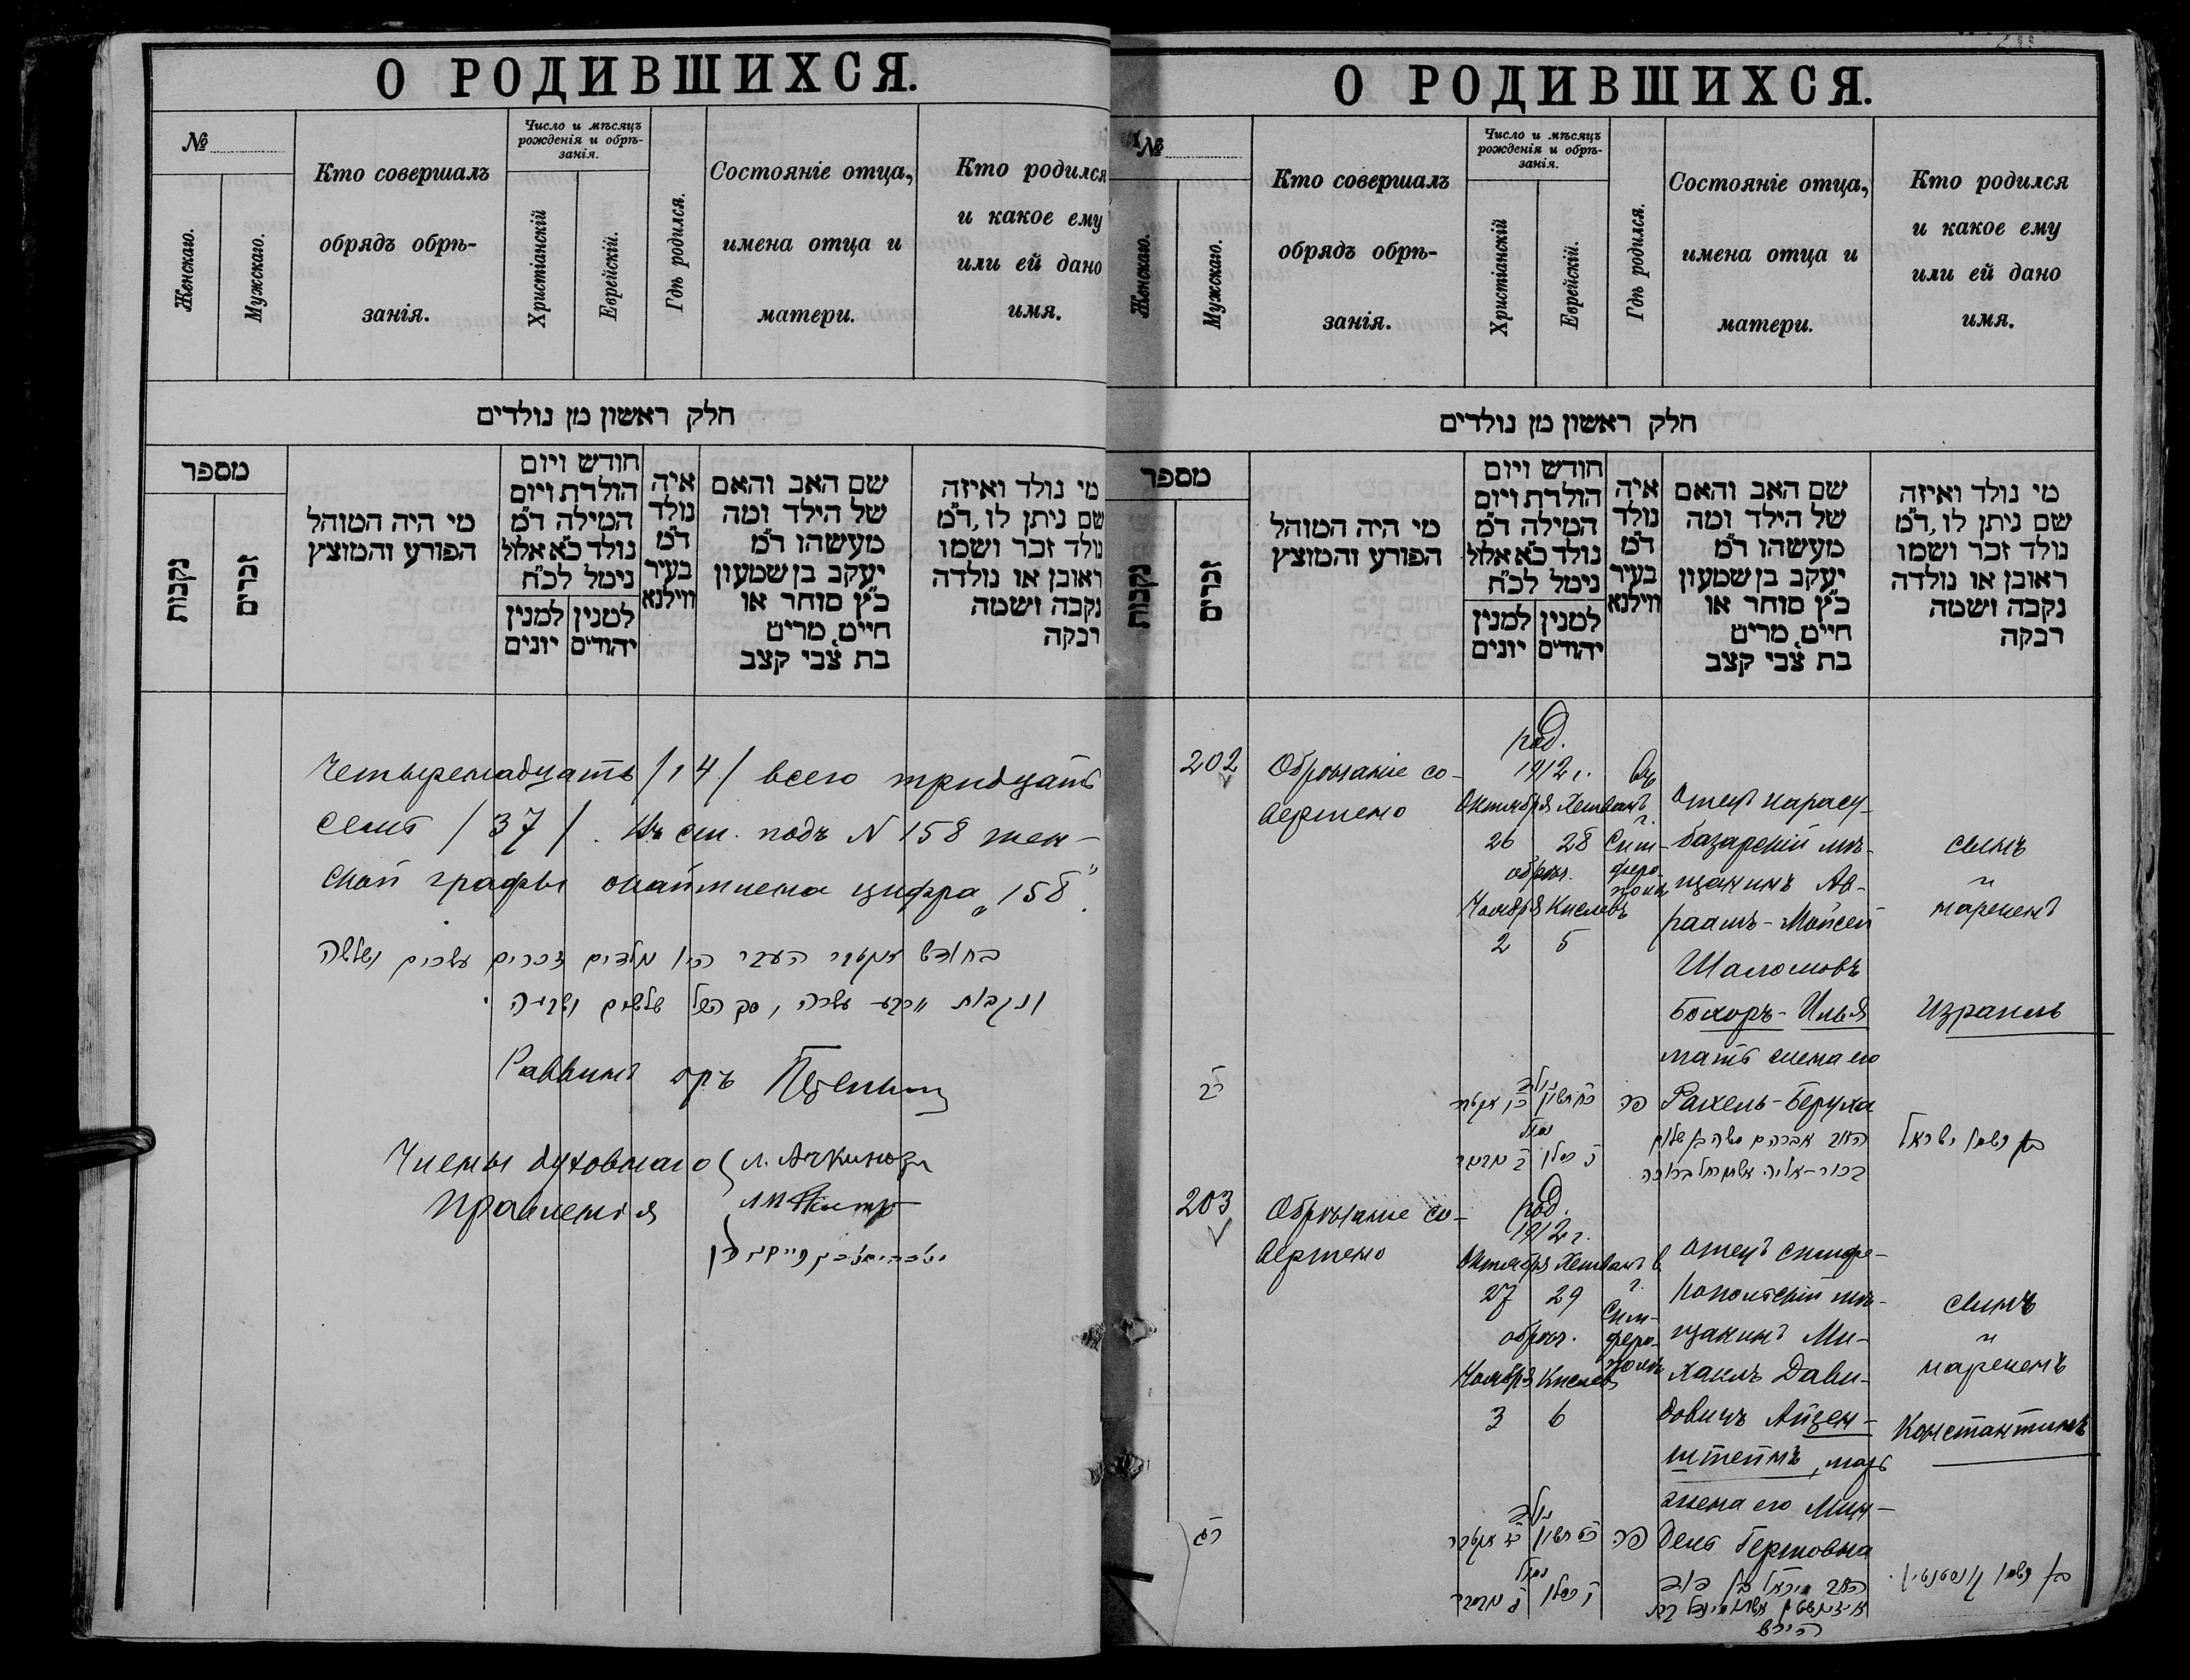 О РОДИВШИХСЯ.
№
Женскаго.
Мужскаго.
Кто совершалъ
обрядъ обрѣ-
занія.
Число и мѣсяцъ
рожденія и обрѣ-
занія.
Христіанскій
Еврейскій.
Гдѣ родился.
Состояніе отца,
имена отца и
матери.
Кто родился
и какое ему
или ей дано
имя.
חלק ראשון מן נולדים
מספר
נקבות
זכרים
מי היה המוהל
הפורע והמוצץ
חודש ויום
הולדת ויום
המילה ד״מ
נולד כ״א אלול
נימל לכ״ח
למנין למנין
יהודים יונים
איה
נולד
ד״מ
בעיר
ווילנא
שם האב והאם
של הילד ומה
מעשהו ד״מ
יעקב בן שמעון
כ״ץ סוחר או
חיים, מרים
בת צבי קצב
מי נולד ואיזה
שם ניתן לו, ד״מ
נולד זכר ושמו
ראובן או נולדה
נקבה ושמה
רבקה
четыренадцать /14/ всего тридцать
семь /37/. Въ ст. подъ N 158 жен-
ской графы цифра „158“.
Раввинъ др
Члены духовнаго
правленія
О РОДИВШИХСЯ.
№
Женскаго.
Мужскаго.
Кто совершалъ
обрядъ обрѣ-
занія.
Число и мѣсяцъ
рожденія и обрѣ-
занія.
Христіанскій
Еврейскій.
Гдѣ родился.
Состояніе отца,
имена отца и
матери.
Кто родился
и какое ему
или ей дано
имя.
חלק ראשון מן נולדים
מספר
נקבות
זכרים
מי היה המוהל
הפורע והמוצץ
חודש ויום
הולדת ויום
המילה ד״מ
נולד כ״א אלול
נימל לכ״ח
למנין למנין
יהודים יונים
איה
נולד
ד״מ
בעיר
ווילנא
שם האב והאם
של הילד ומה
מעשהו ד״מ
יעקב בן שמעון
כ״ץ סוחר או
חיים, מרים
בת צבי קצב
מי נולד ואיזה
שם ניתן לו, ד״מ
נולד זכר ושמו
ראובן או נולדה
נקבה ושמה
רבקה
202
Обрѣзаніе со-
вершено
род.
1912 г.
Октября Хешванъ
26 28
обрѣз.
Ноября Кислевъ
2 5
въ
г.
Сим-
феро-
полѣ
отецъ карасу-
базарскій мѣ-
щанинъ Ав-
раамъ-Мойсей
Шаломовъ
Бохоръ-Илья
мать жена его
Рахель-Беруха
сынъ
и
нареченъ
Израиль
רב
נולד
כח חשון
פה
נימול
ה׳ כסלו
האב אברהם משה בן שלום
בכור-אליה אמו רחל ברוכה
בן ושמו ישראל
203
Обрѣзаніе со-
вершено
род.
1912 г.
Октября Хешванъ
27 29
обрѣз.
Ноября Кислев
3 6
в
г.
Сим-
феро-
полѣ
отецъ симфе-
ропольскій мѣ-
щанинъ Ми-
хаилъ Дави-
довичъ Айзен-
штейнъ, мать
жена его Мин-
дель Гершовна
сынъ
и
нареченъ
Константинъ
רג
נולד
כט חשון
פה
נימול
ו׳ כסלו
הירש
בן ושמו קונסטנטין.